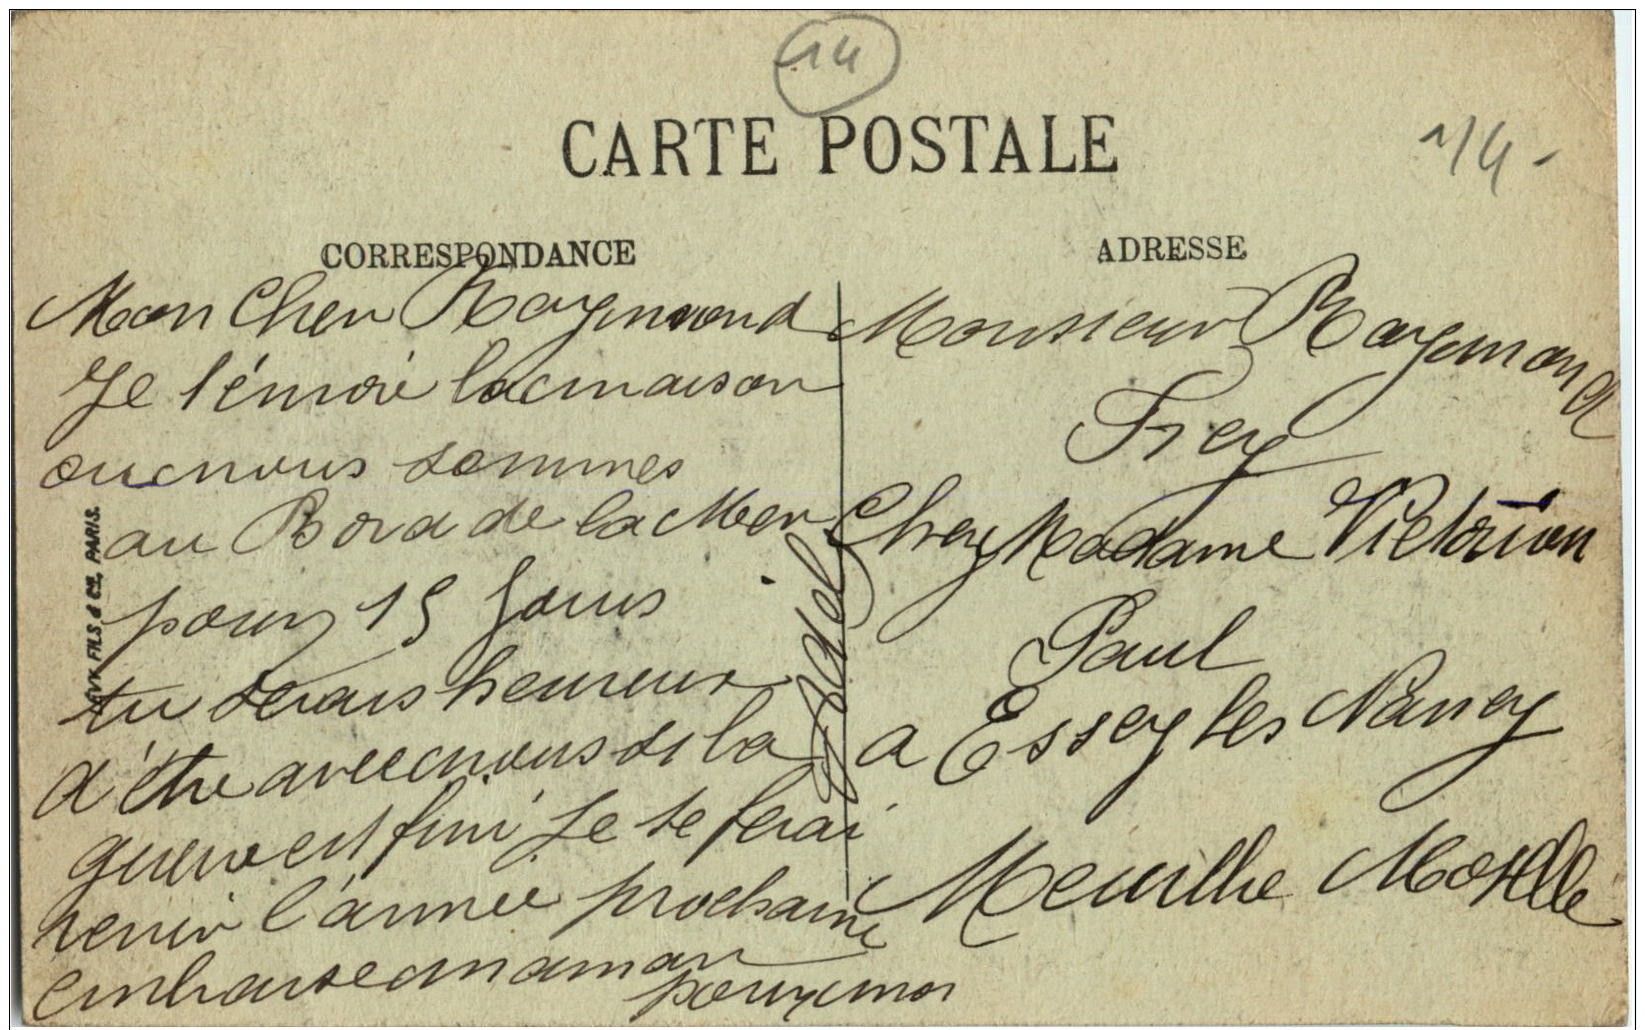 14
CARTE POSTALE
1/4-
CORRESPONDANCE
Mon Cher Raymond
Je t'envoie la maison
ou nous sommes
au Bord de la Mer
pour 15 Jours
tu serais heureux
d'être avec nous si la
guerre est fini Je te ferai
venir l'année prochaine
embrasse maman
pour moi
LÉVY FILS & CIE, PARIS.
ADRESSE
Monsieur Raymond
Frey
Chez Madame
Paul
a Essey les Nancy
Meurthe Moselle